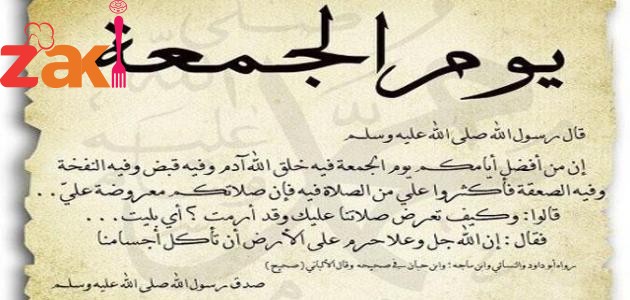 zaki
يوم الجمعة
قال رسول الله صلى الله عليه وسلم
إن من أفضل أيامكم يوم الجمعة فيه خلق الله آدم وفيه قبض وفيه النفخة
وفيه الصعقة فأكثروا علي من الصلاة فيه فإن صلاتكم معروضة عليّ . .
قالوا : وكيف تعرض صلاتنا عليك وقد أرمت ؟ أي بليت . . .
فقال : إن الله جل وعلا حرم على الأرض أن تأكل أجسامنا
رواه أبو داود والنسائي وابن ماجه ؛ وابن حبان في صحيحه وقال الألباني ( صحيح )
صدق رسول الله صلى الله عليه وسلم